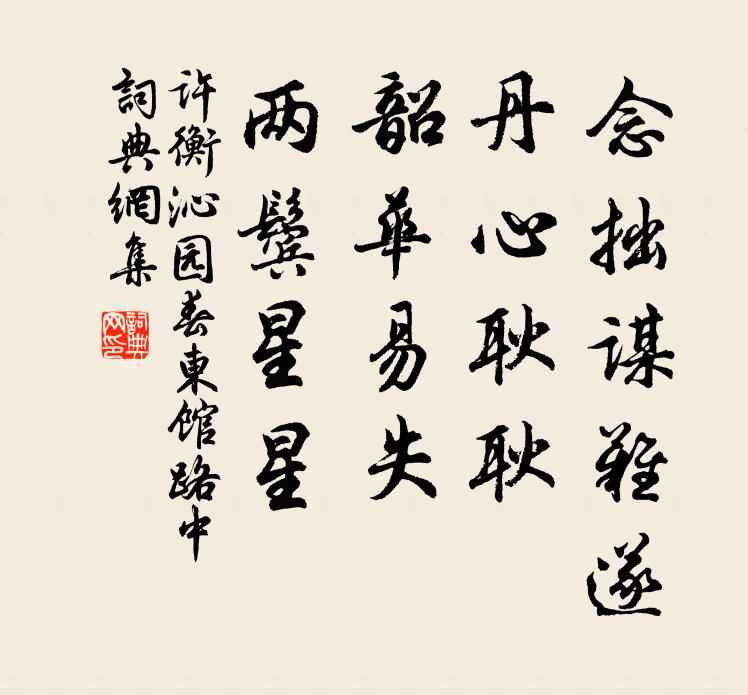 念拙谋难遂
丹心耿耿
韶华易失
两鬓星星
许衡沁园春東馆路中
詞典網集
詞典
网印